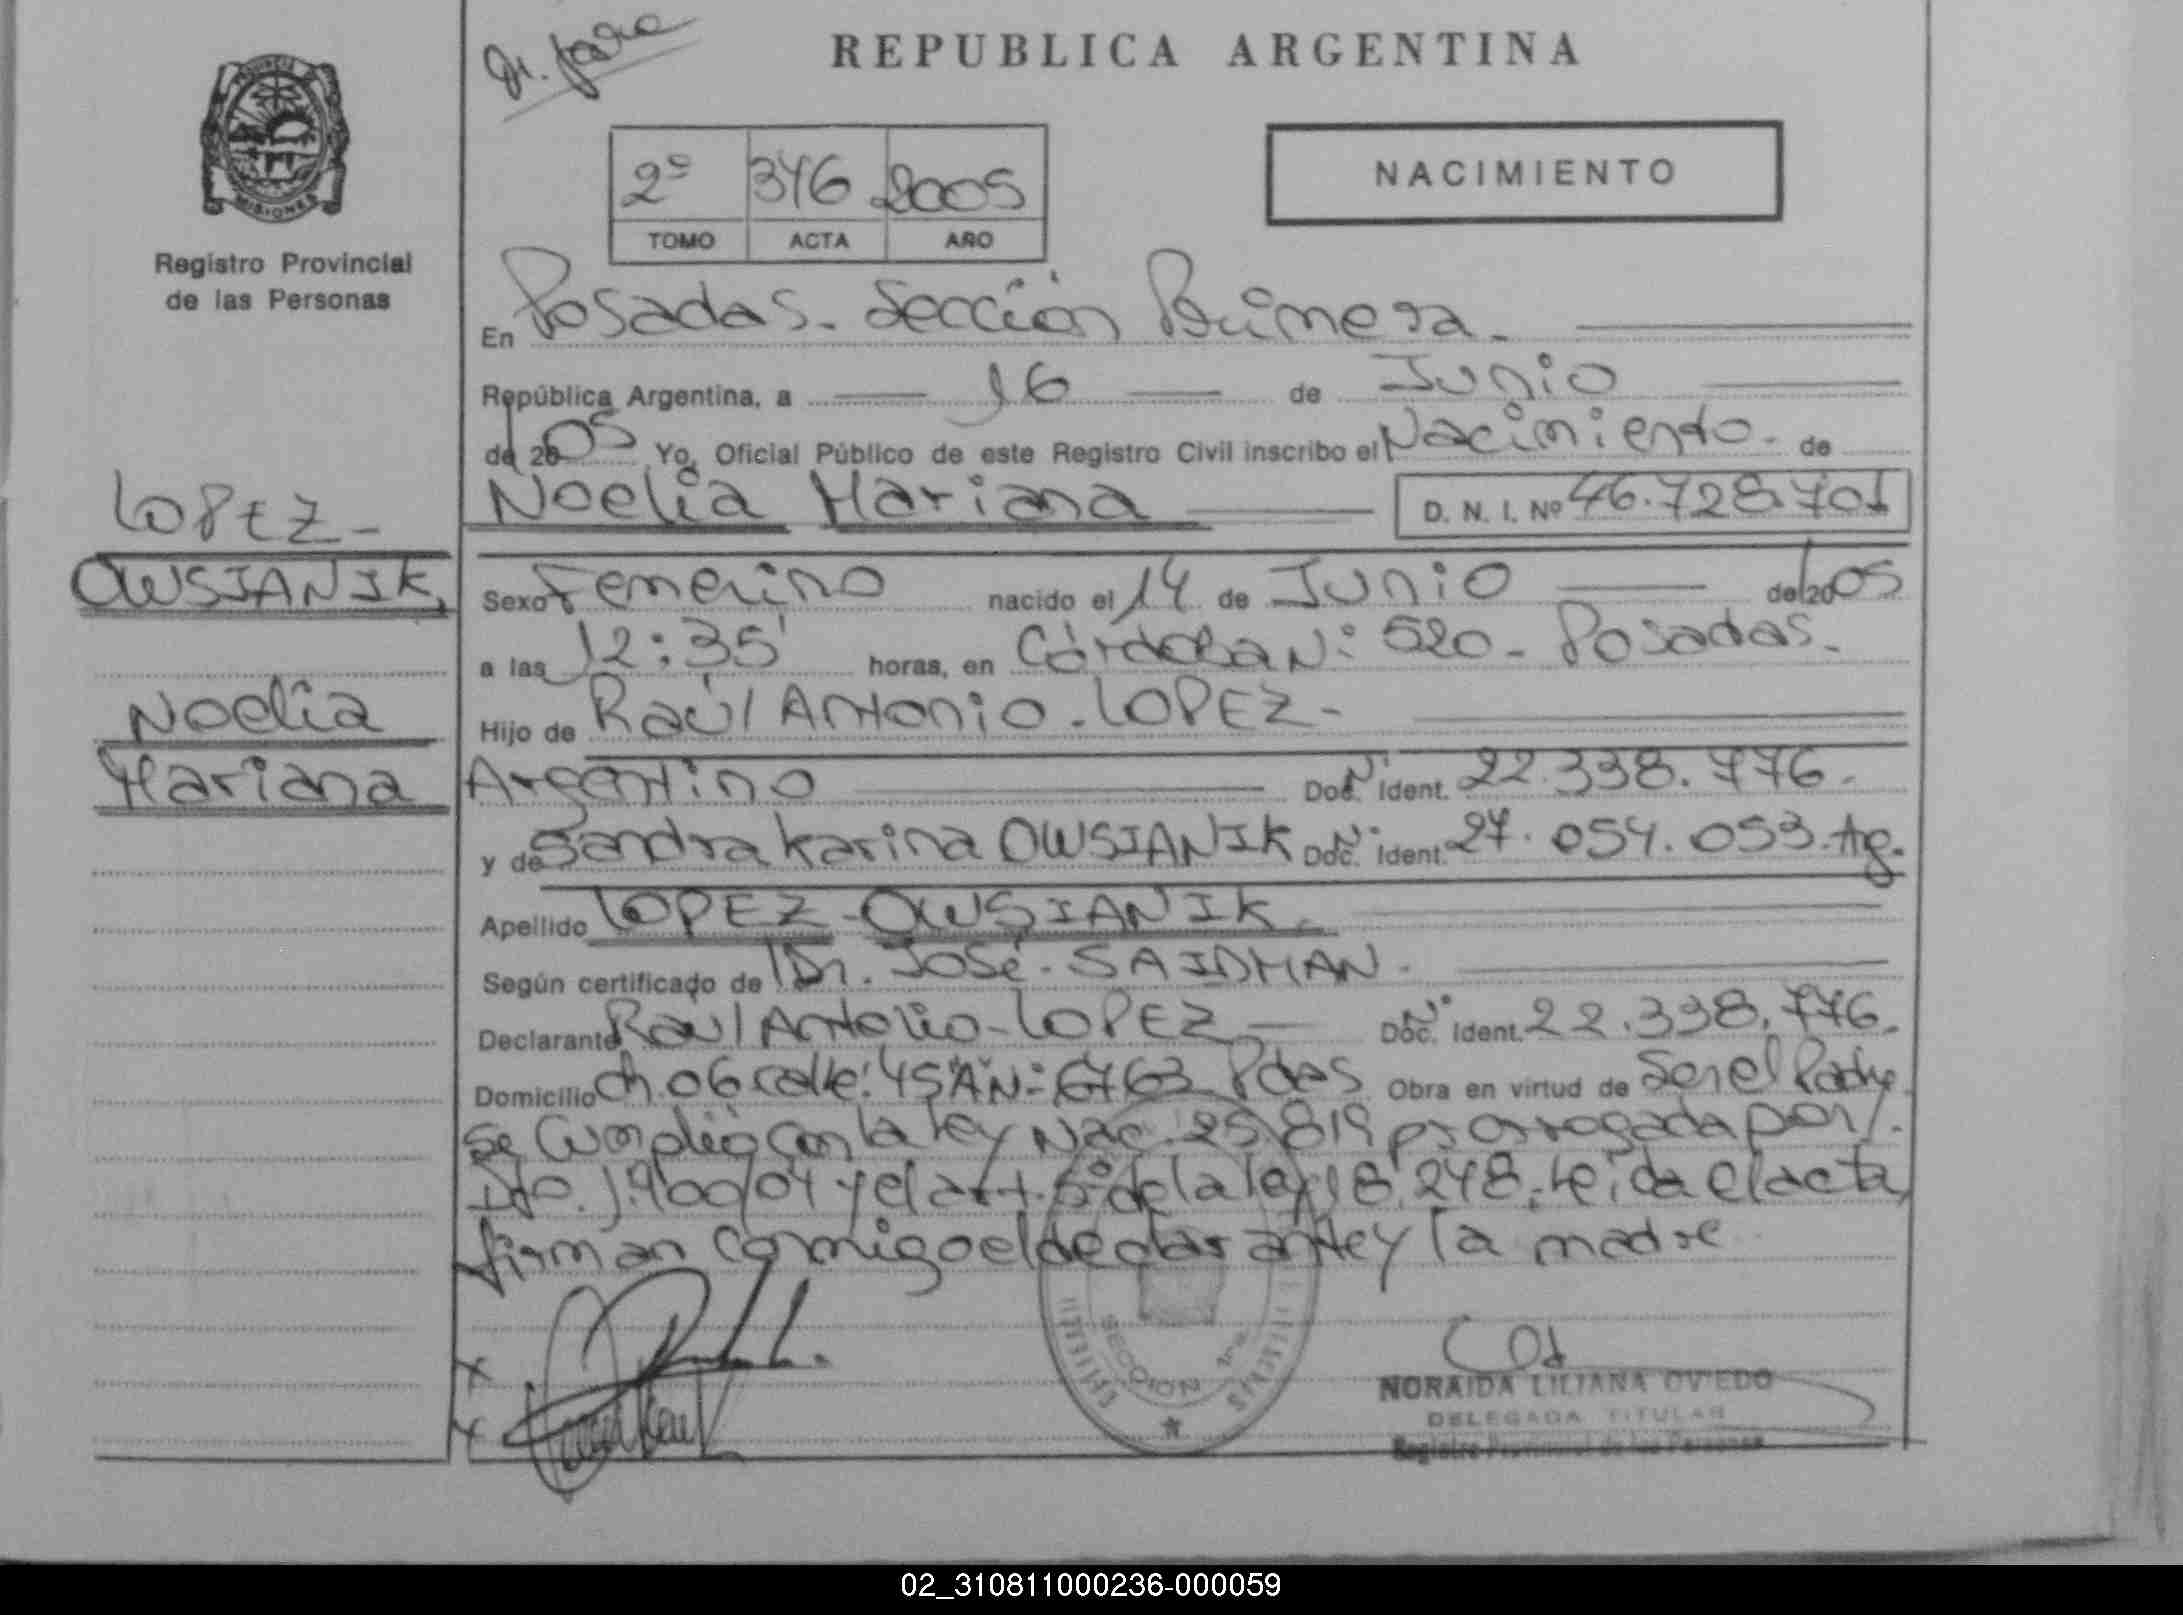 Dr. Jara
REPUBLICA ARGENTINA
2º 346 2005
TOMO ACTA AÑO
NACIMIENTO
MISIONES
Registro Provincial
de las Personas
En Posadas. Sección Primera.
República Argentina, a 16 de Junio
de 2005 Yo, Oficial Público de este Registro Civil inscribo el Nacimiento. de
LOPEZ-
OWSIANIK,
Noelia
Mariana
Noelia Mariana D. N. I. Nº 46.728.701
Sexo Femenino nacido el 14 de Junio de 2005
a las 12:35' horas, en Córdoba Nº 520 - Posadas.
Hijo de Raúl Antonio - LOPEZ -
Argentino Doc. Nº Ident. 22.338.776.
y de Sandra Karina OWSIANIK Doc. Nº Ident. 27.054.053. Ag.
Apellido LOPEZ - OWSIANIK.
Según certificado de Dr. José - SAIDMAN.
Declarante Raúl Antonio - LOPEZ Doc. Nº Ident. 22.338.776.
Domicilio ch. 06 calle: 45 "A" Nº 6763 Pdas Obra en virtud de Ser el Padre
Se Cumplió con la ley Nac. 25.819 prorrogada por/.
Dto. 1.900/04 y el art. 5º de la ley 18.248.- Leída el acta,
firman conmigo el declarante y la madre
SECCION 1ra.
MISIONES
NORAIDA LILIANA OVIEDO
DELEGADA TITULAR
Registro Provincial de las Personas
02_310811000236-000059